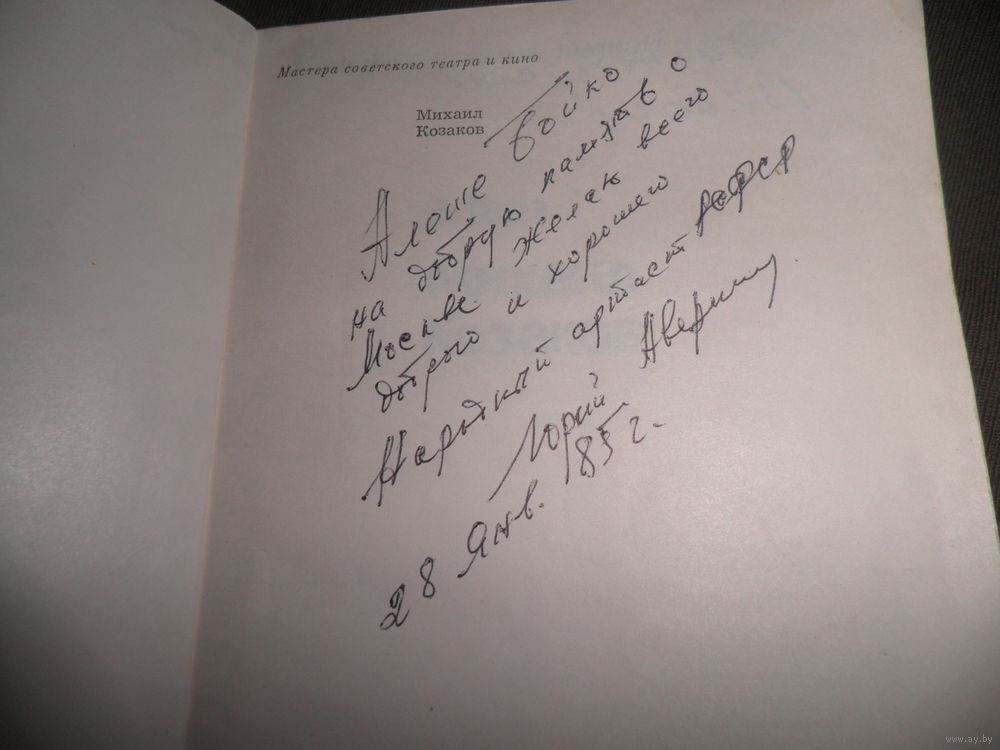 Мастера советского театра и кино
Михаил
Козаков
Алеше Бойко
на добрую память о
Москве. Желаю всего
доброго и хорошего
Народный артист РСФСР
Юрий Аверин
28 янв. 85 г.
www.ay.by